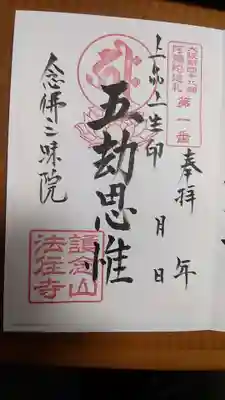 大阪新四十八願
阿彌陀巡礼
第一番
奉拝 年
月 日
上品上生印
五劫思惟
念佛三昧院
誼念山
法住寺